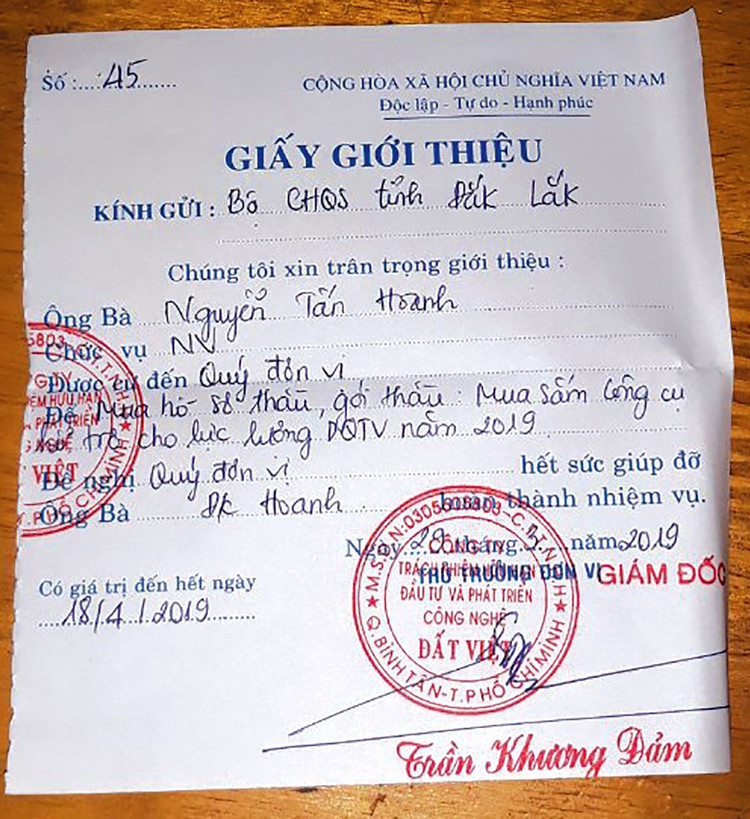 Số :....45.......
CỘNG HÒA XÃ HỘI CHỦ NGHĨA VIỆT NAM
Độc lập - Tự do - Hạnh phúc
GIẤY GIỚI THIỆU
KÍNH GỬI : Bộ CHQS tỉnh Đắk Lắk
Chúng tôi xin trân trọng giới thiệu :
Ông Bà Nguyễn Tấn Hoanh
Chức vụ NV
Được cử đến Quý đơn vị
Để Mua hồ sơ thầu, gói thầu: Mua sắm công cụ
hỗ trợ cho lực lượng DQTV năm 2019
Đề nghị Quý đơn vị hết sức giúp đỡ
Ông Bà Hoanh hoàn thành nhiệm vụ.
Ngày 29 tháng năm 2019
THỦ TRƯỞNG ĐƠN VỊ GIÁM ĐỐC
Có giá trị đến hết ngày
18/4/2019
CÔNG TY
TRÁCH NHIỆM HỮU HẠN
ĐẦU TƯ VÀ PHÁT TRIỂN
CÔNG NGHỆ
ĐẤT VIỆT
Q.BÌNH TÂN-T.PHỐ CHÍ MINH
Trần Khương Đảm